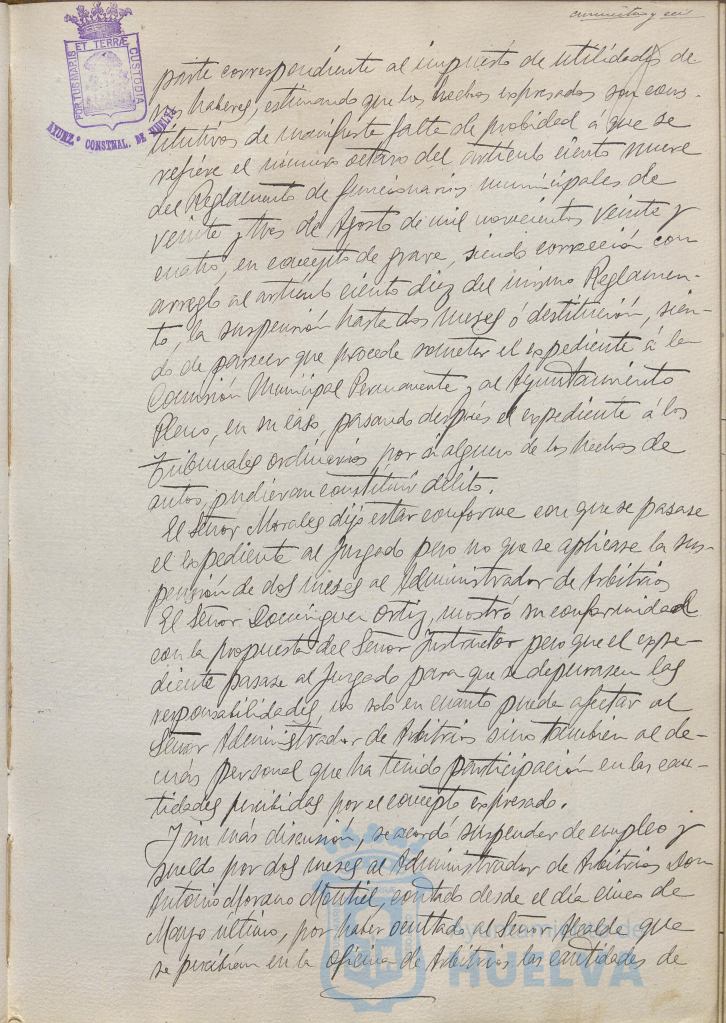 cincuenta y seis
PORTUS MARIS ET TERRÆ CUSTODIA
AYUNT.º CONSTNAL. DE HUELVA
parte correspondiente al impuesto de utilidades de
sus haberes, estimando que los hechos expresados son cons-
titutivos de manifiesta falta de probidad á que se
refiere el número octavo del artículo ciento nueve
del Reglamento de funcionarios municipales de
veinte y tres de Agosto de mil novecientos veinte y
cuatro, en concepto de grave, siendo corrección con
arreglo al artículo ciento diez del mismo Reglamen-
to, la suspensión hasta dos meses ó destitución, sien-
do de parecer que procede someter el expediente á la
Comisión Municipal Permanente y al Ayuntamiento
Pleno, en su caso, pasando después el expediente á los
Tribunales ordinarios por si alguno de los hechos de
autos, pudieran constituir delito.
El Señor Morales dijo estar conforme con que se pasase
el expediente al Juzgado pero no que se aplicase la sus-
pensión de dos meses al Administrador de Arbitrios
El Señor Domínguez Ortiz, mostró su conformidad
con la propuesta del Señor Instructor pero que el expe-
diente pasase al Juzgado para que se depurasen las
responsabilidades, no solo en cuanto puede afectar al
Señor Administrador de Arbitrios sino también al de-
más personal que ha tenido participación en las can-
tidades percibidas por el concepto expresado.
Y sin más discusión, se acordó suspender de empleo y
sueldo por dos meses al Administrador de Arbitrios Don
Antonio Moreno Montiel, contado desde el día cinco de
Mayo último, por haber ocultado al Señor Alcalde que
se percibían en la oficina de Arbitrios las cantidades de
Ayuntamiento de
HUELVA